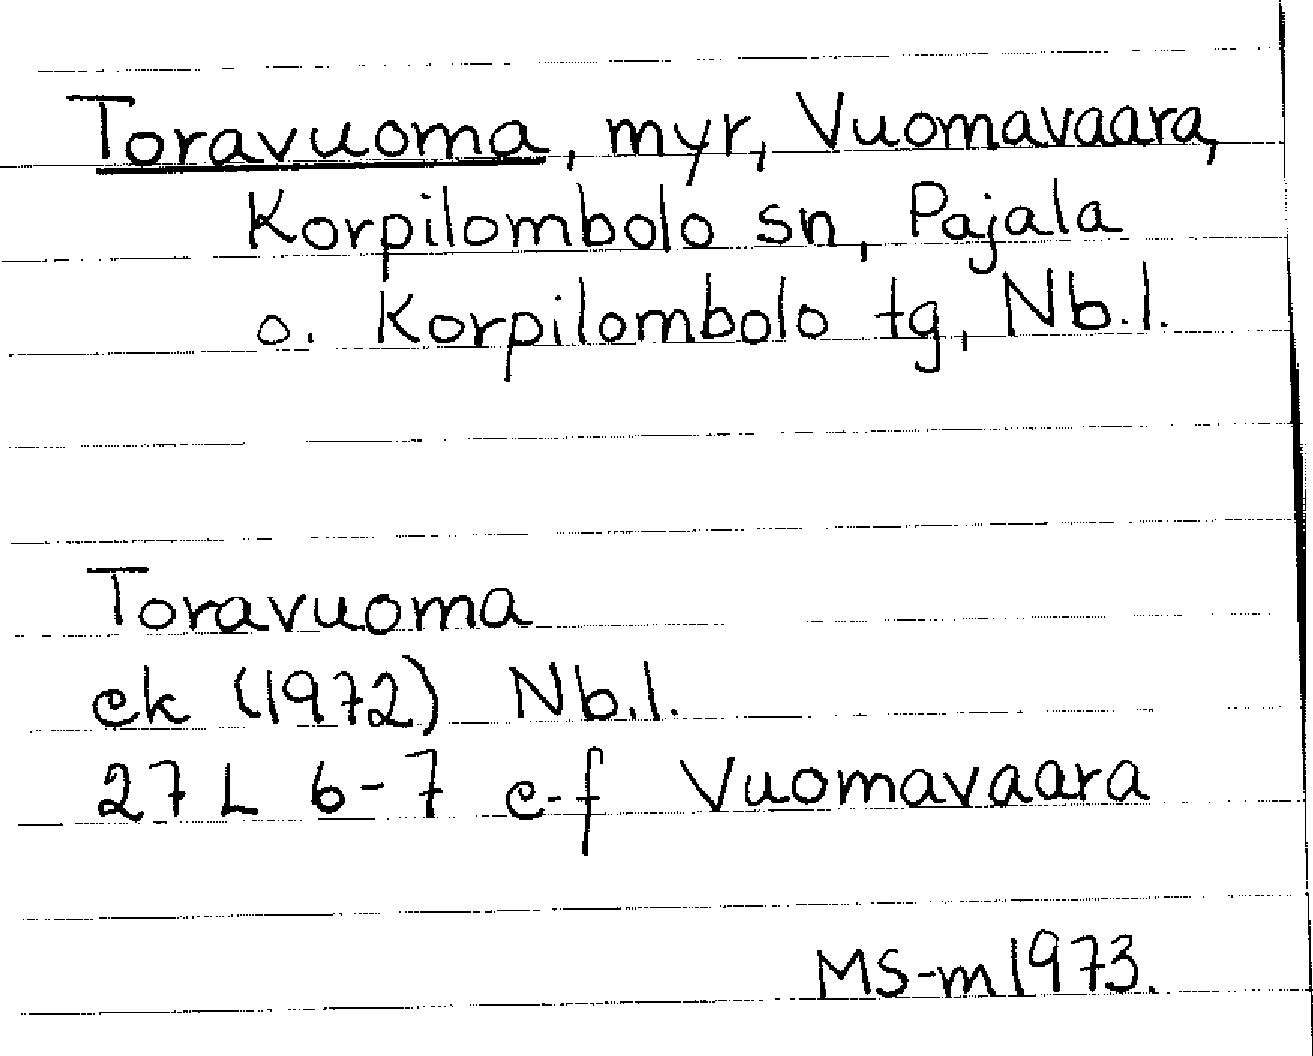 Toravuoma, myr, Vuomavaara,
Korpilombolo sn, Pajala
o. Korpilombolo tg, Nb.l.
Toravuoma
ek (1972) Nb.l.
27 L 6-7 e-f Vuomavaara
MS-m 1973.